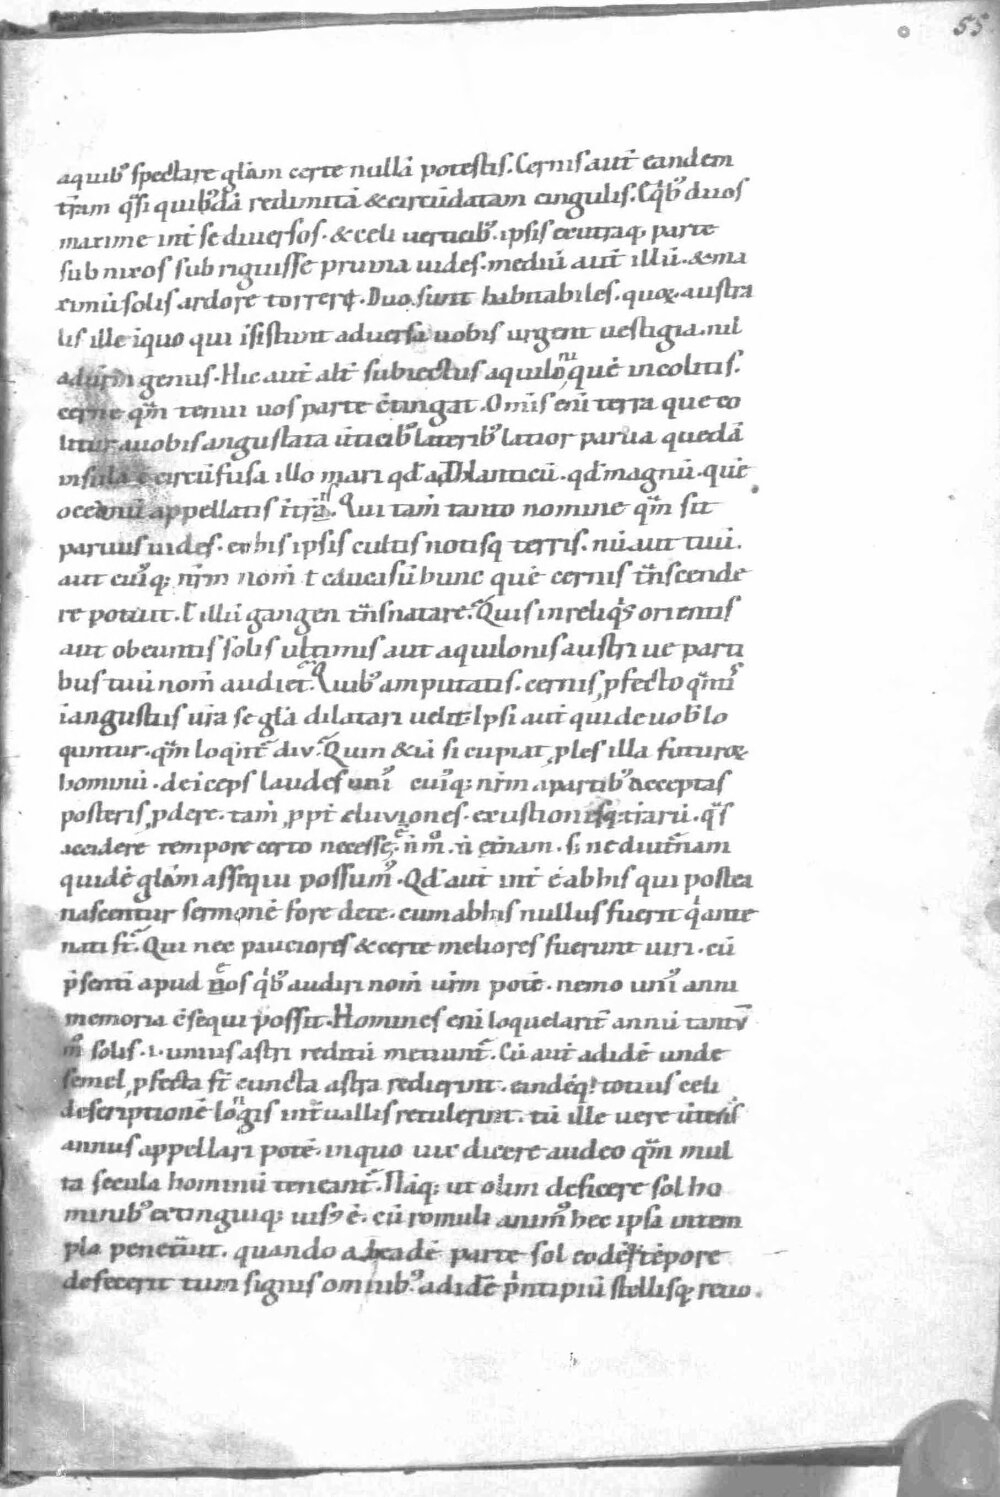 55
aquib᷒ spectare gl̄am certe nullā potestis. Cernis aut̄ eandem
tr̄am q̄si quib᷒dā redimitā & circūdatam cingulis. Eq̄b᷒ duos
maxime int̄ se diuersos. & celi uerticib᷒. ipsis ex utraq; parte
subnixos subriguisse pruina uides. mediū aut̄ illū. & ma
ximū solis ardore torreri. Duo sunt habitabiles. quoꝝ austra
lis ille īquo qui īsistunt aduersa uobis urgent uestigia. nil
ad ur̄m genus. Hic aut̄ alt̄ subiectus aquiloni quē incolitis.
cerne q̄m tenui uos parte c̄tingat. Om̄is eni terra que co
litur auobis angustata ūticib᷒ laterib᷒ latior parua quedā
insula ē circūfusa illo mari qd̄ adthlanticū. qd̄ magnū. quē
occeanū appellatis ī tr̄is. Qui tam̄ tanto nomine q̄m sit
paruus uides. ex his ipsis cultis notisq terris. nū aut tuū.
aut cui᷒q; nr̄m nom̄ ł caucasū hunc quē cernis tn̄scende
re potuit. ł illū gangen tn̄snatare. Quis in reliq̄s orientis
aut obeuntis solis ultimis aut aquilonis austri ue parti
bus tuū nom̄ audiet. Quib᷒ amputatis. cernis ꝓfecto q̄ntis
ī angustiis ur̄a se gl̄a dilatari uelit. Ipsi aut̄ qui de uob̄ lo
quntur. q̄m loq̄nt̄ diu. Quin & iā si cupiat ꝓles illa futuroꝝ
hominū. deīceps laudes uni᷒ cui᷒q; nr̄m a partib᷒ acceptas
posteris ꝓdere. tam̄ ꝓpt̄ eluuiones. exustionesq; tr̄arū. q̄s
accidere tempore certo necesse ē. n̄ m᷒. n̄ et̄nam. s; ne diut̄nam
quidē gl̄am assequi possum᷒. Qd̄ aut̄ int̄ ē ab his qui postea
nascentur sermonē fore dete. cum ab his nullus fuerit q̄ ante
nati st̄. Qui nec pauciores & certe meliores fuerunt uiri. cū
p̄serti apud eos q̄b᷒ audiri nom̄ ur̄m potē. nemo uni᷒ anni
memoria c̄sequi possit. Homines eni loquelarit̄ annū tantū
m᷒ solis .i. unius astri reditū metiunt̄. Cū aut̄ ad idē unde
semel ꝓfecta st̄ cuncta astra redierint. eandēq; totius celi
descriptionē longis int̄uallis retulerint. tū ille uere ūtens
annus appellari potē. inquo uix dicere audeo q̄m mul
ta secula hominū teneant̄. Nāq; ut olim deficere sol ho
minib᷒ extinguiq; uis᷒ ē. cū romuli anim᷒ hec ipsa in tem
pla penet̄uit. quando ab eadē parte sol eodēq; tēpore
defecerit tum signis omnib᷒ ad idē p̄ntipiū stellisq; reuo.